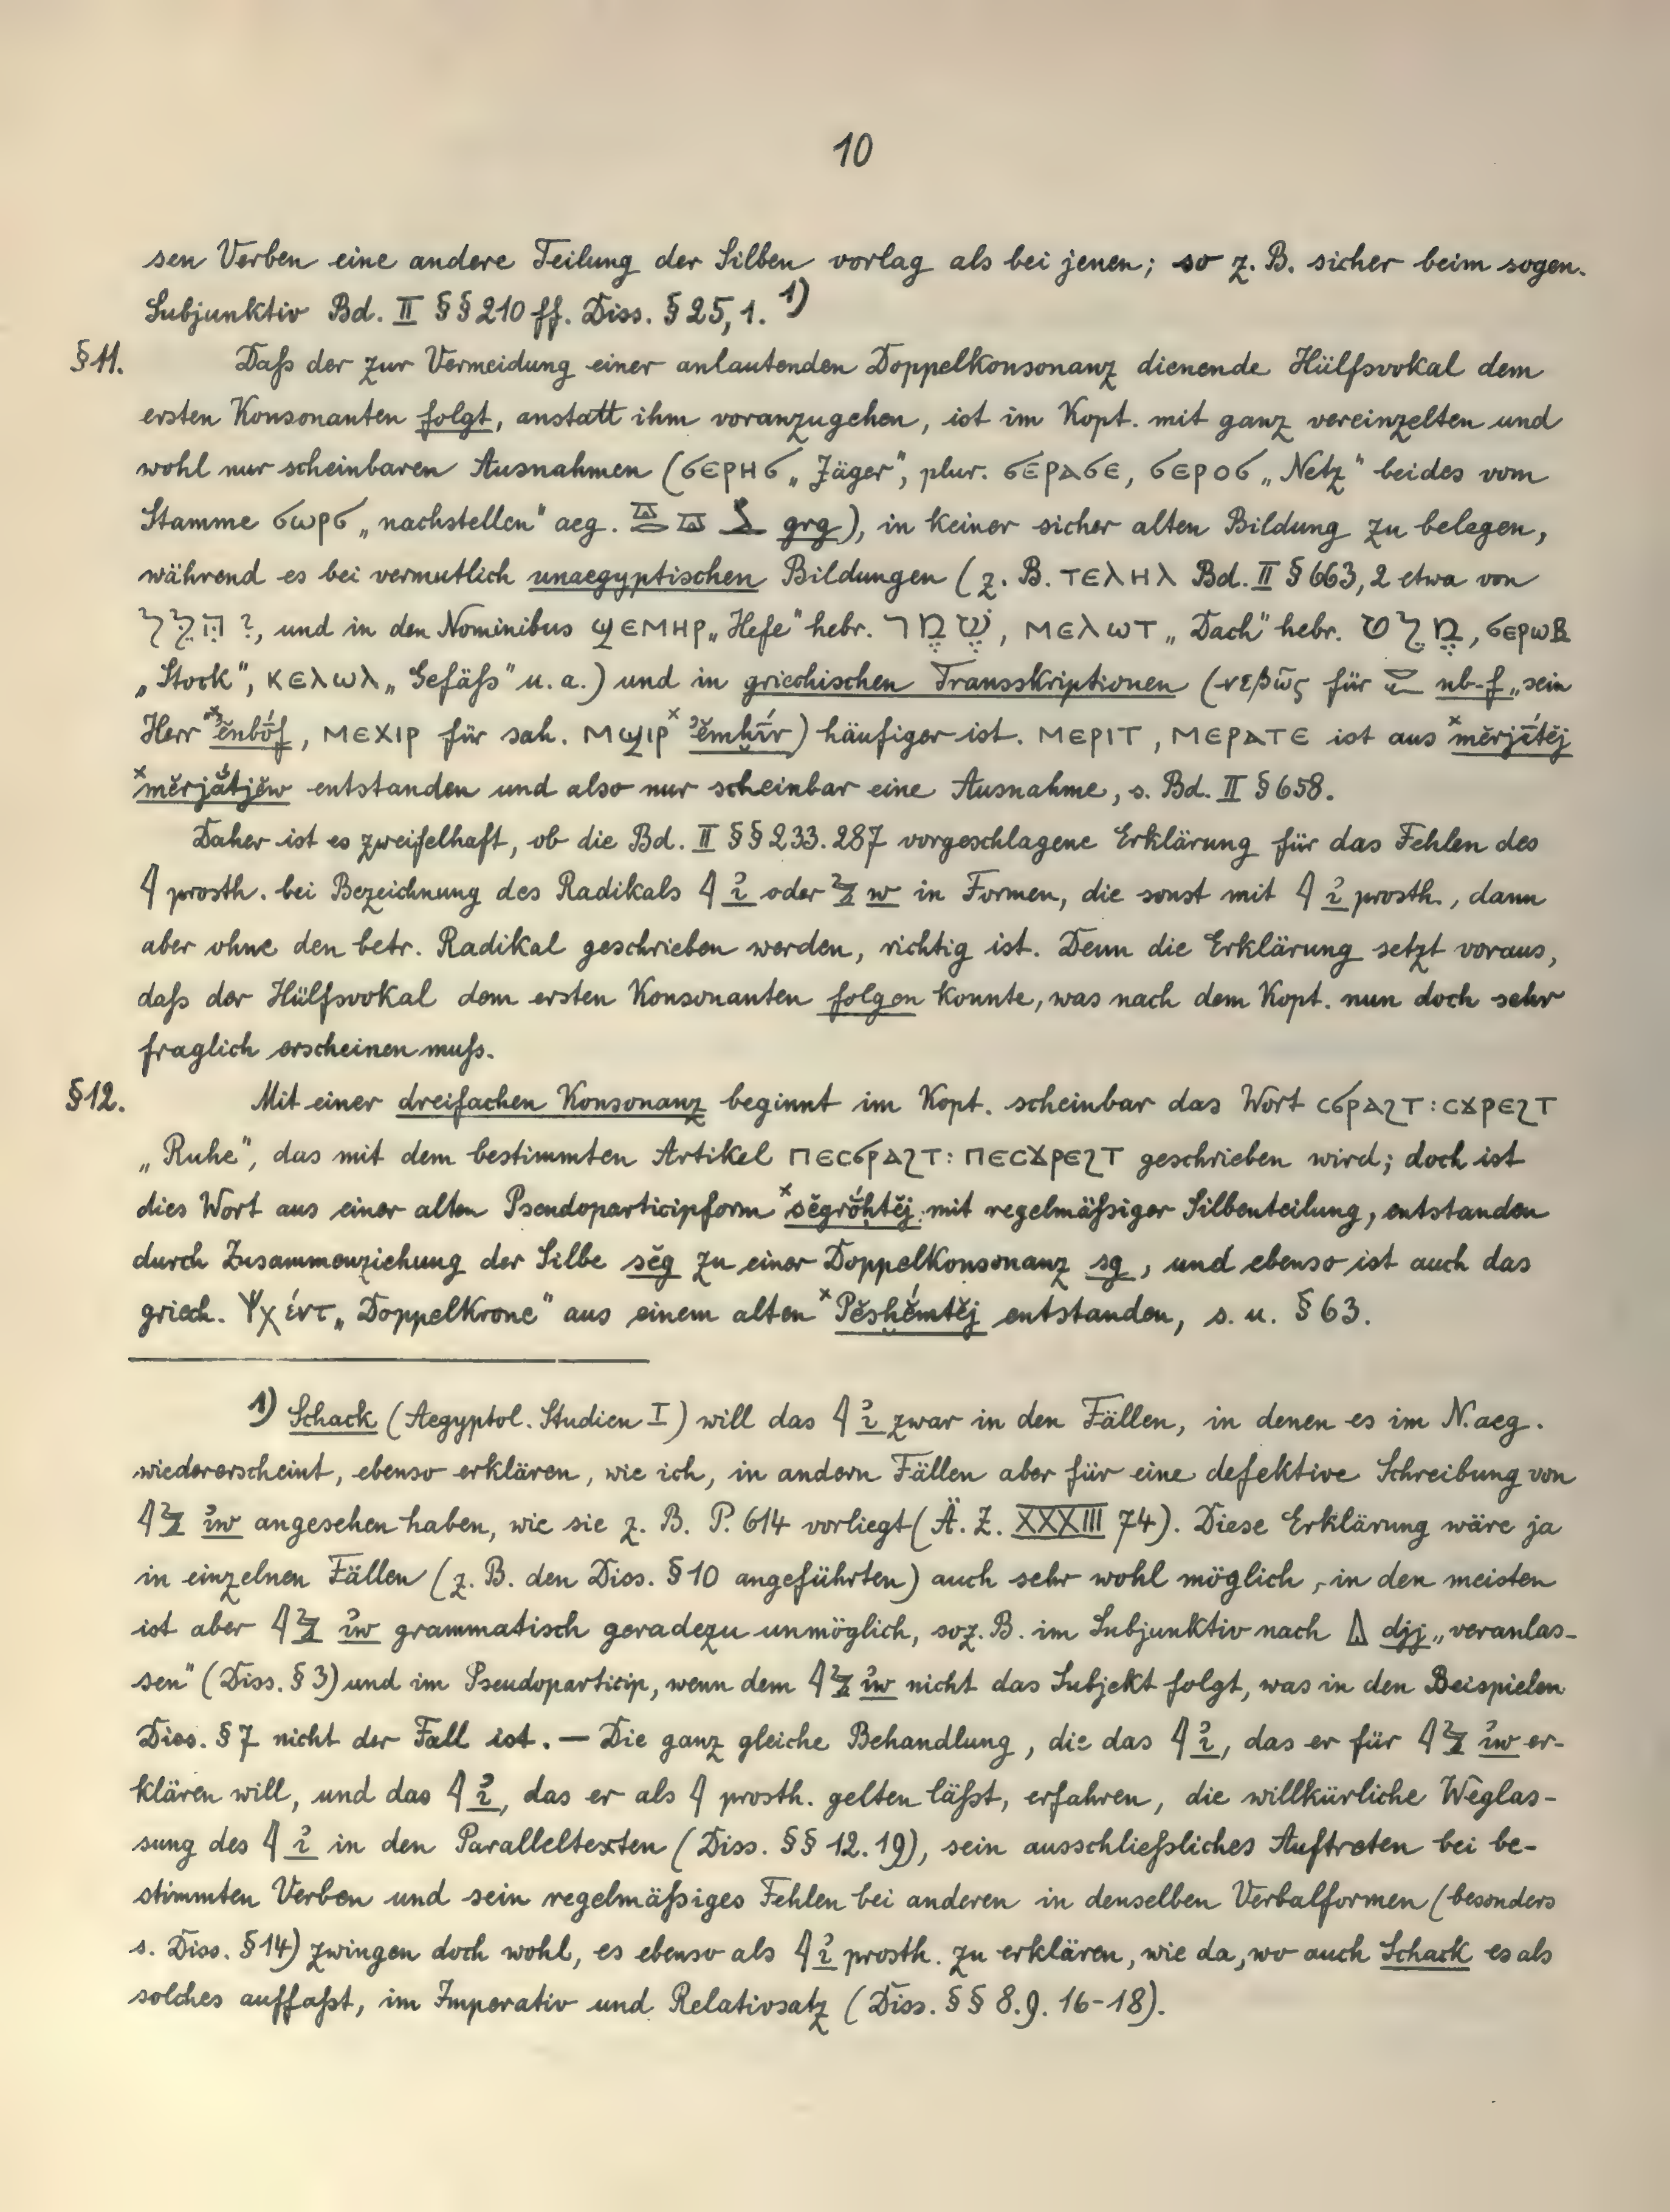 10
sen Verben eine andere Teilung der Silben vorlag als bei jenen; so z. B. sicher beim sogen.
Subjunktiv Bd. II §§ 210 ff. Diss. § 25, 1. 1)
§ 11. Daß der zur Vermeidung einer anlautenden Doppelkonsonanz dienende Hülfsvokal dem
ersten Konsonanten folgt, anstatt ihm voranzugehen, ist im Kopt. mit ganz vereinzelten und
wohl nur scheinbaren Ausnahmen (ϭⲉⲣⲏϭ „Jäger", plur. ϭⲉⲣⲁϭⲉ, ϭⲉⲣⲟϭ „Netz" beides vom
Stamme ϭⲱⲣϭ „nachstellen" aeg. grg), in keiner sicher alten Bildung zu belegen,
während es bei vermutlich unaegyptischen Bildungen (z. B. ⲧⲉⲗⲏⲗ Bd. II § 663, 2 etwa von
?, und in den Nominibus ϣⲉⲙⲏⲣ „Hefe" hebr. שְׁמָר, ⲙⲉⲗⲱⲧ „Dach" hebr. ϭⲉⲣⲱⲃ
„Stock", ⲕⲉⲗⲱⲗ „Gefäß" u. a.) und in griechischen Transskriptionen (-νεβῶς für nb-f „sein
Herr" *ꜥĕnbóf, ⲙⲉⲭⲓⲣ für sah. ⲙϣⲓⲣ *ꜥĕmḫír) häufiger ist. ⲙⲉⲣⲓⲧ, ⲙⲉⲣⲁⲧⲉ ist aus *mĕrjĭ́tĕj
*mĕrjắtjĕw entstanden und also nur scheinbar eine Ausnahme, s. Bd. II § 658.
Daher ist es zweifelhaft, ob die Bd. II §§ 233. 287 vorgeschlagene Erklärung für das Fehlen des
𓇋 prosth. bei Bezeichnung des Radikals 𓇋 ꞽ oder 𓅱 w in Formen, die sonst mit 𓇋 ꞽ prosth., dann
aber ohne den betr. Radikal geschrieben werden, richtig ist. Denn die Erklärung setzt voraus,
daß der Hülfsvokal dem ersten Konsonanten folgen konnte, was nach dem Kopt. nun doch sehr
fraglich erscheinen muß.
§ 12. Mit einer dreifachen Konsonanz beginnt im Kopt. scheinbar das Wort ⲥϭⲣⲁϩⲧ : ⲥϫⲣⲉϩⲧ
„Ruhe", das mit dem bestimmten Artikel ⲡⲉⲥϭⲣⲁϩⲧ : ⲡⲉⲥϫⲣⲉϩⲧ geschrieben wird; doch ist
dies Wort aus einer alten Pseudoparticipform *sĕgrŏ́ḥtĕj, mit regelmäßiger Silbenteilung, entstanden
durch Zusammenziehung der Silbe sĕg zu einer Doppelkonsonanz sg, und ebenso ist auch das
griech. Ψχέντ „Doppelkrone" aus einem alten *Pĕsḫĕ́mtĕj entstanden, s. u. § 63.
1) Schack (Aegyptol. Studien I) will das 𓇋 ꞽ zwar in den Fällen, in denen es im N.aeg.
wiedererscheint, ebenso erklären, wie ich, in andern Fällen aber für eine defektive Schreibung von
𓇋𓅱 ꞽw angesehen haben, wie sie z. B. P. 614 vorliegt (Ä. Z. XXXIII 74). Diese Erklärung wäre ja
in einzelnen Fällen (z. B. den Diss. § 10 angeführten) auch sehr wohl möglich, in den meisten
ist aber 𓇋𓅱 ꞽw grammatisch geradezu unmöglich, so z. B. im Subjunktiv nach djj „veranlas-
sen" (Diss. § 3) und im Pseudoparticip, wenn dem 𓇋𓅱 ꞽw nicht das Subjekt folgt, was in den Beispielen
Diss. § 7 nicht der Fall ist. — Die ganz gleiche Behandlung, die das 𓇋 ꞽ, das er für 𓇋𓅱 ꞽw er-
klären will, und das 𓇋 ꞽ, das er als 𓇋 prosth. gelten läßt, erfahren, die willkürliche Weglas-
sung des 𓇋 ꞽ in den Paralleltexten (Diss. §§ 12. 19), sein ausschließliches Auftreten bei be-
stimmten Verben und sein regelmäßiges Fehlen bei anderen in denselben Verbalformen (besonders
s. Diss. § 14) zwingen doch wohl, es ebenso als 𓇋 ꞽ prosth. zu erklären, wie da, wo auch Schack es als
solches auffaßt, im Imperativ und Relativsatz (Diss. §§ 8. 9. 16-18).